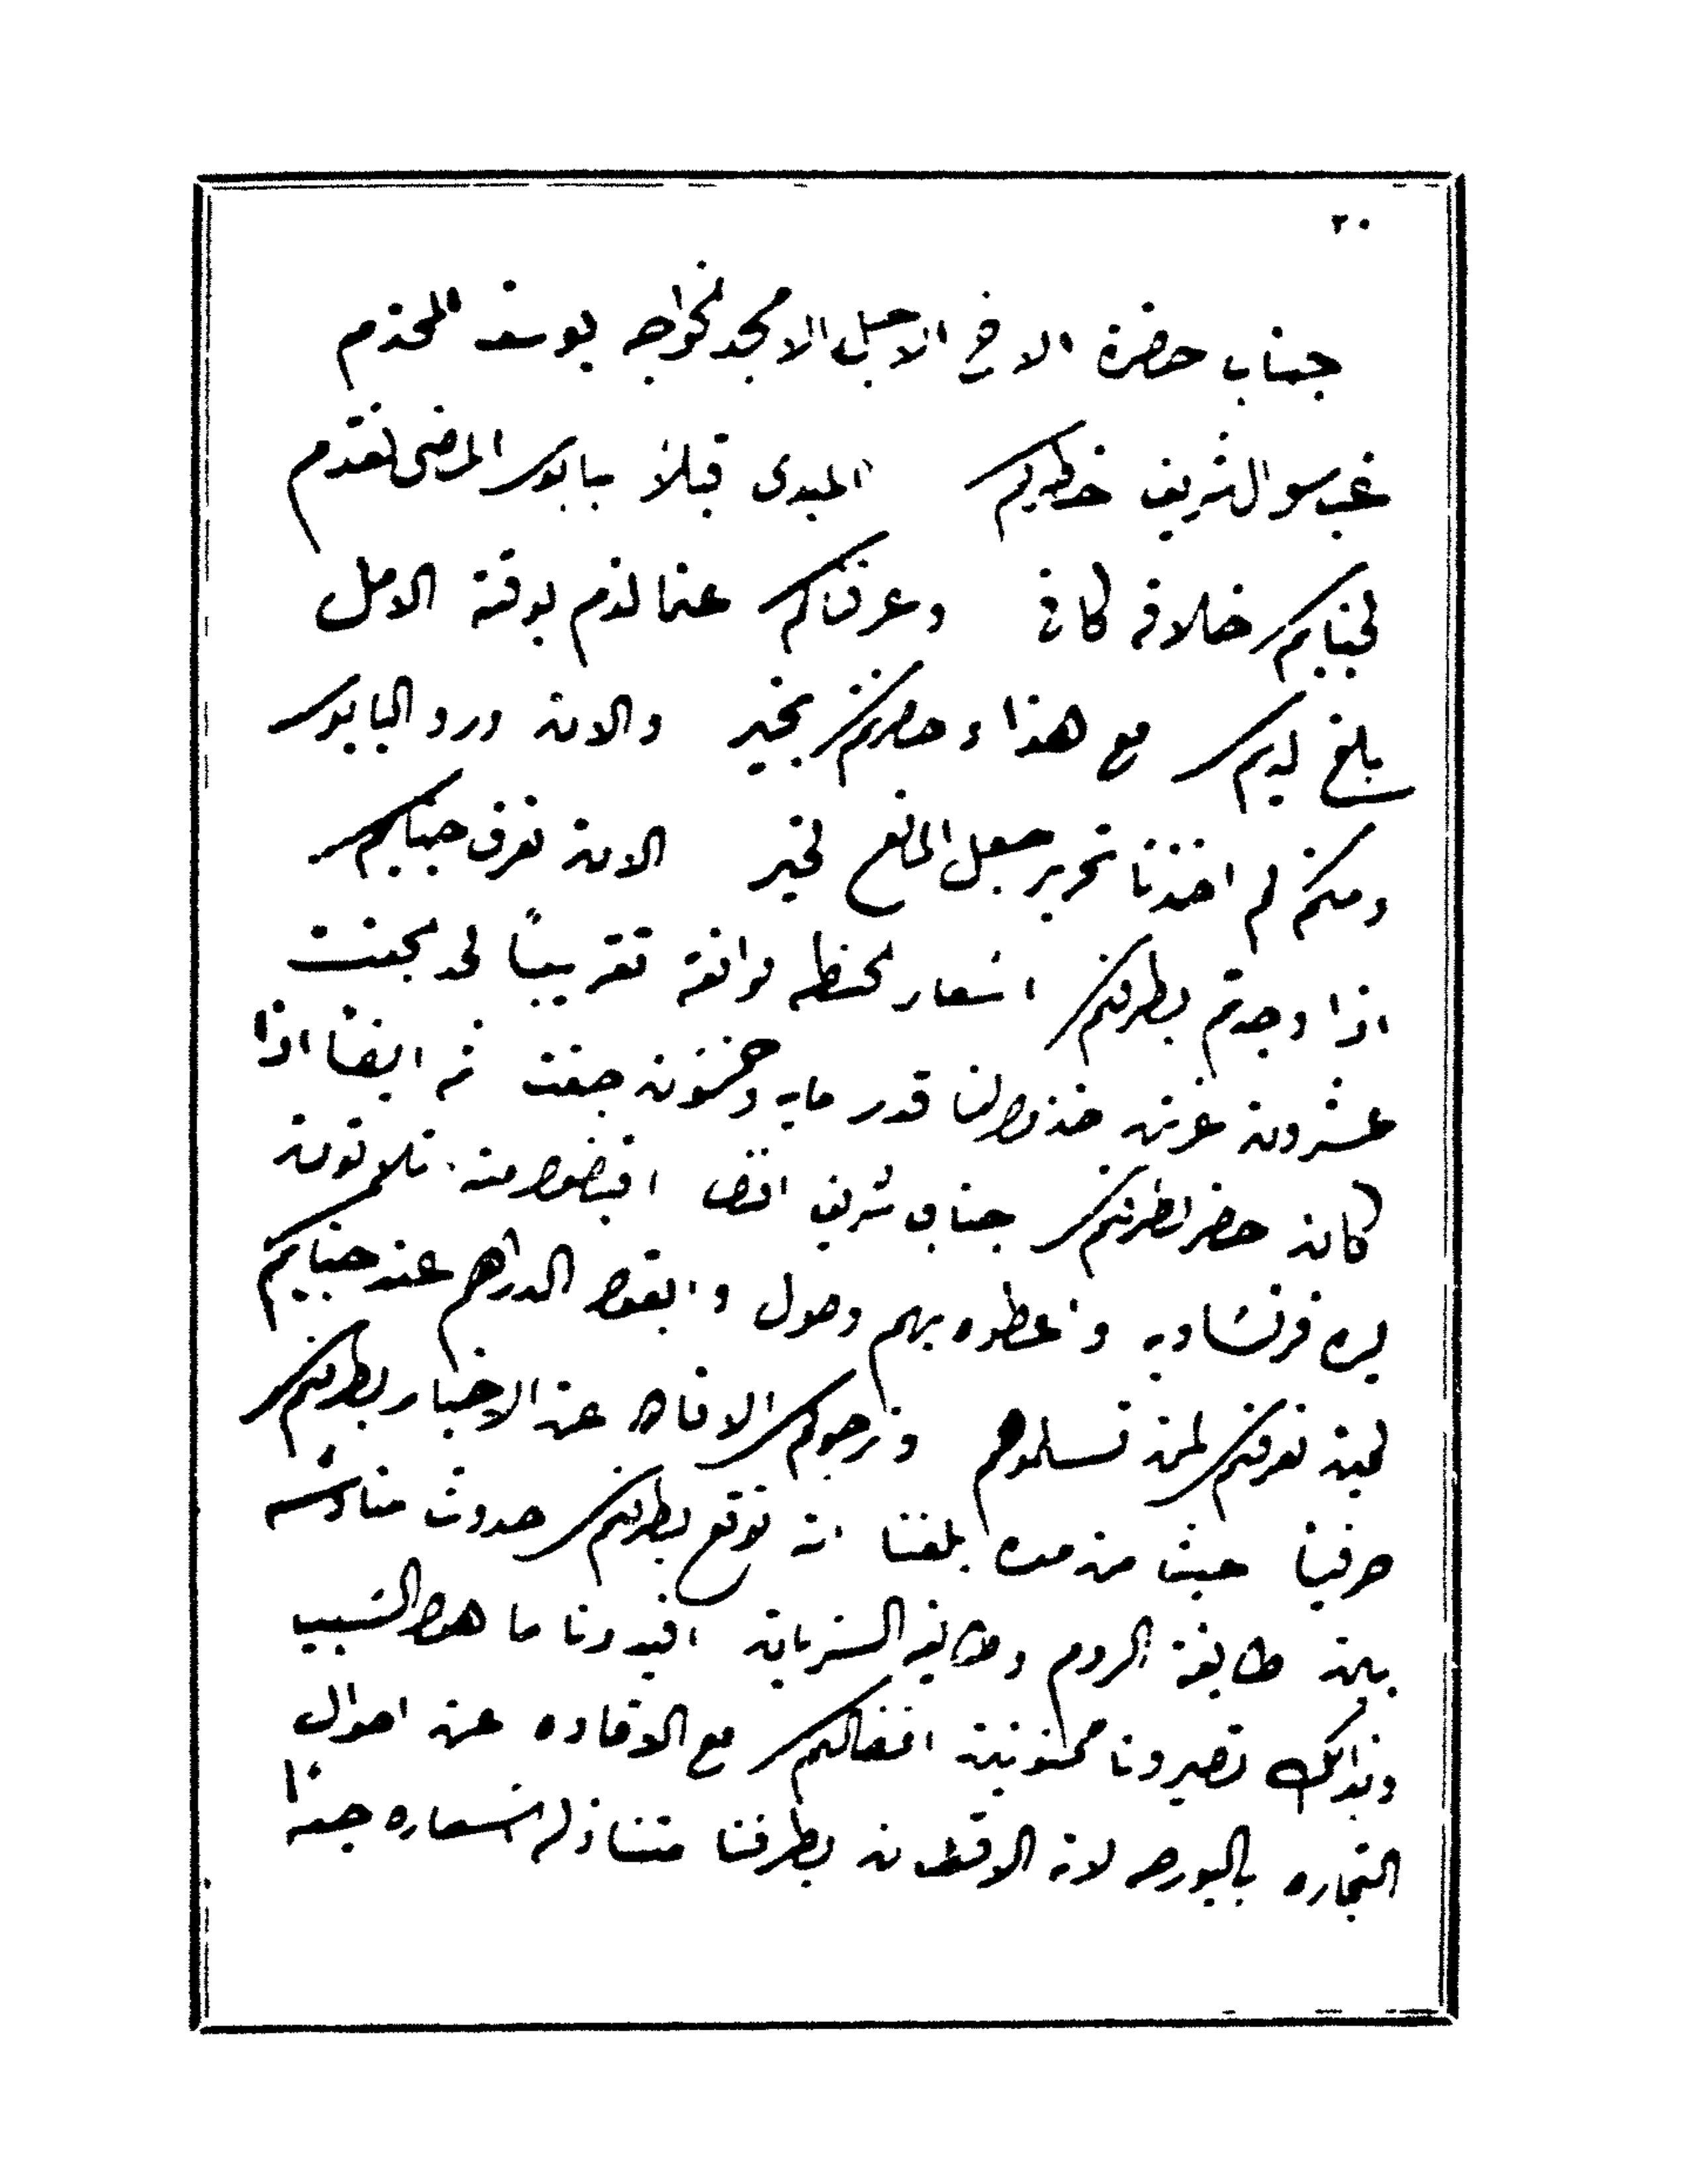 ٢٠
جناب حضرة الاخ الاجل الامجد الخواجه يوسف المحترم
غب سوال شريف خاطركم المبدى قبلاً ببابور الماضي تقدم
لجنابكم خلافه كافي وعرفناكم عنما لزم بوقته الامل
بلغ لديكم مع هذا وحضرتكم بخير والان ورد البابور
ومنكم لم اخذنا تحرير جعل المانع لخير الان نعرف جنابكم
اذا وجدتم بطرفكم اسعار الحنطه موافقه تقريباً لحد الجفت
عشرون غرش خذوا لنا قدر مايه وخمسون جفت ثم ايضا اذا
كان حضر لطرفكم جناب شريف اقبضوا منه ثلاثون
ليره فرنساويه واعطوه بهم وصول وابقوا الدراهم عند جنابكم
لحين نعرفكم لمن تسلموهم ونرجوكم الافاده عن الاخبار بطرفكم
حرفياً حيث من مده بلغنا انه توقع بطرفكم حدوث مناوشه
بين طايفة الروم وطايفة السريان افيدونا ما هو السبب
وبذالك تصيرونا ممنونين افضالكم مع الافاده عن احوال
التجاره بالبورصه لان الاقطان بطرفنا متنازله اسعاره جداً